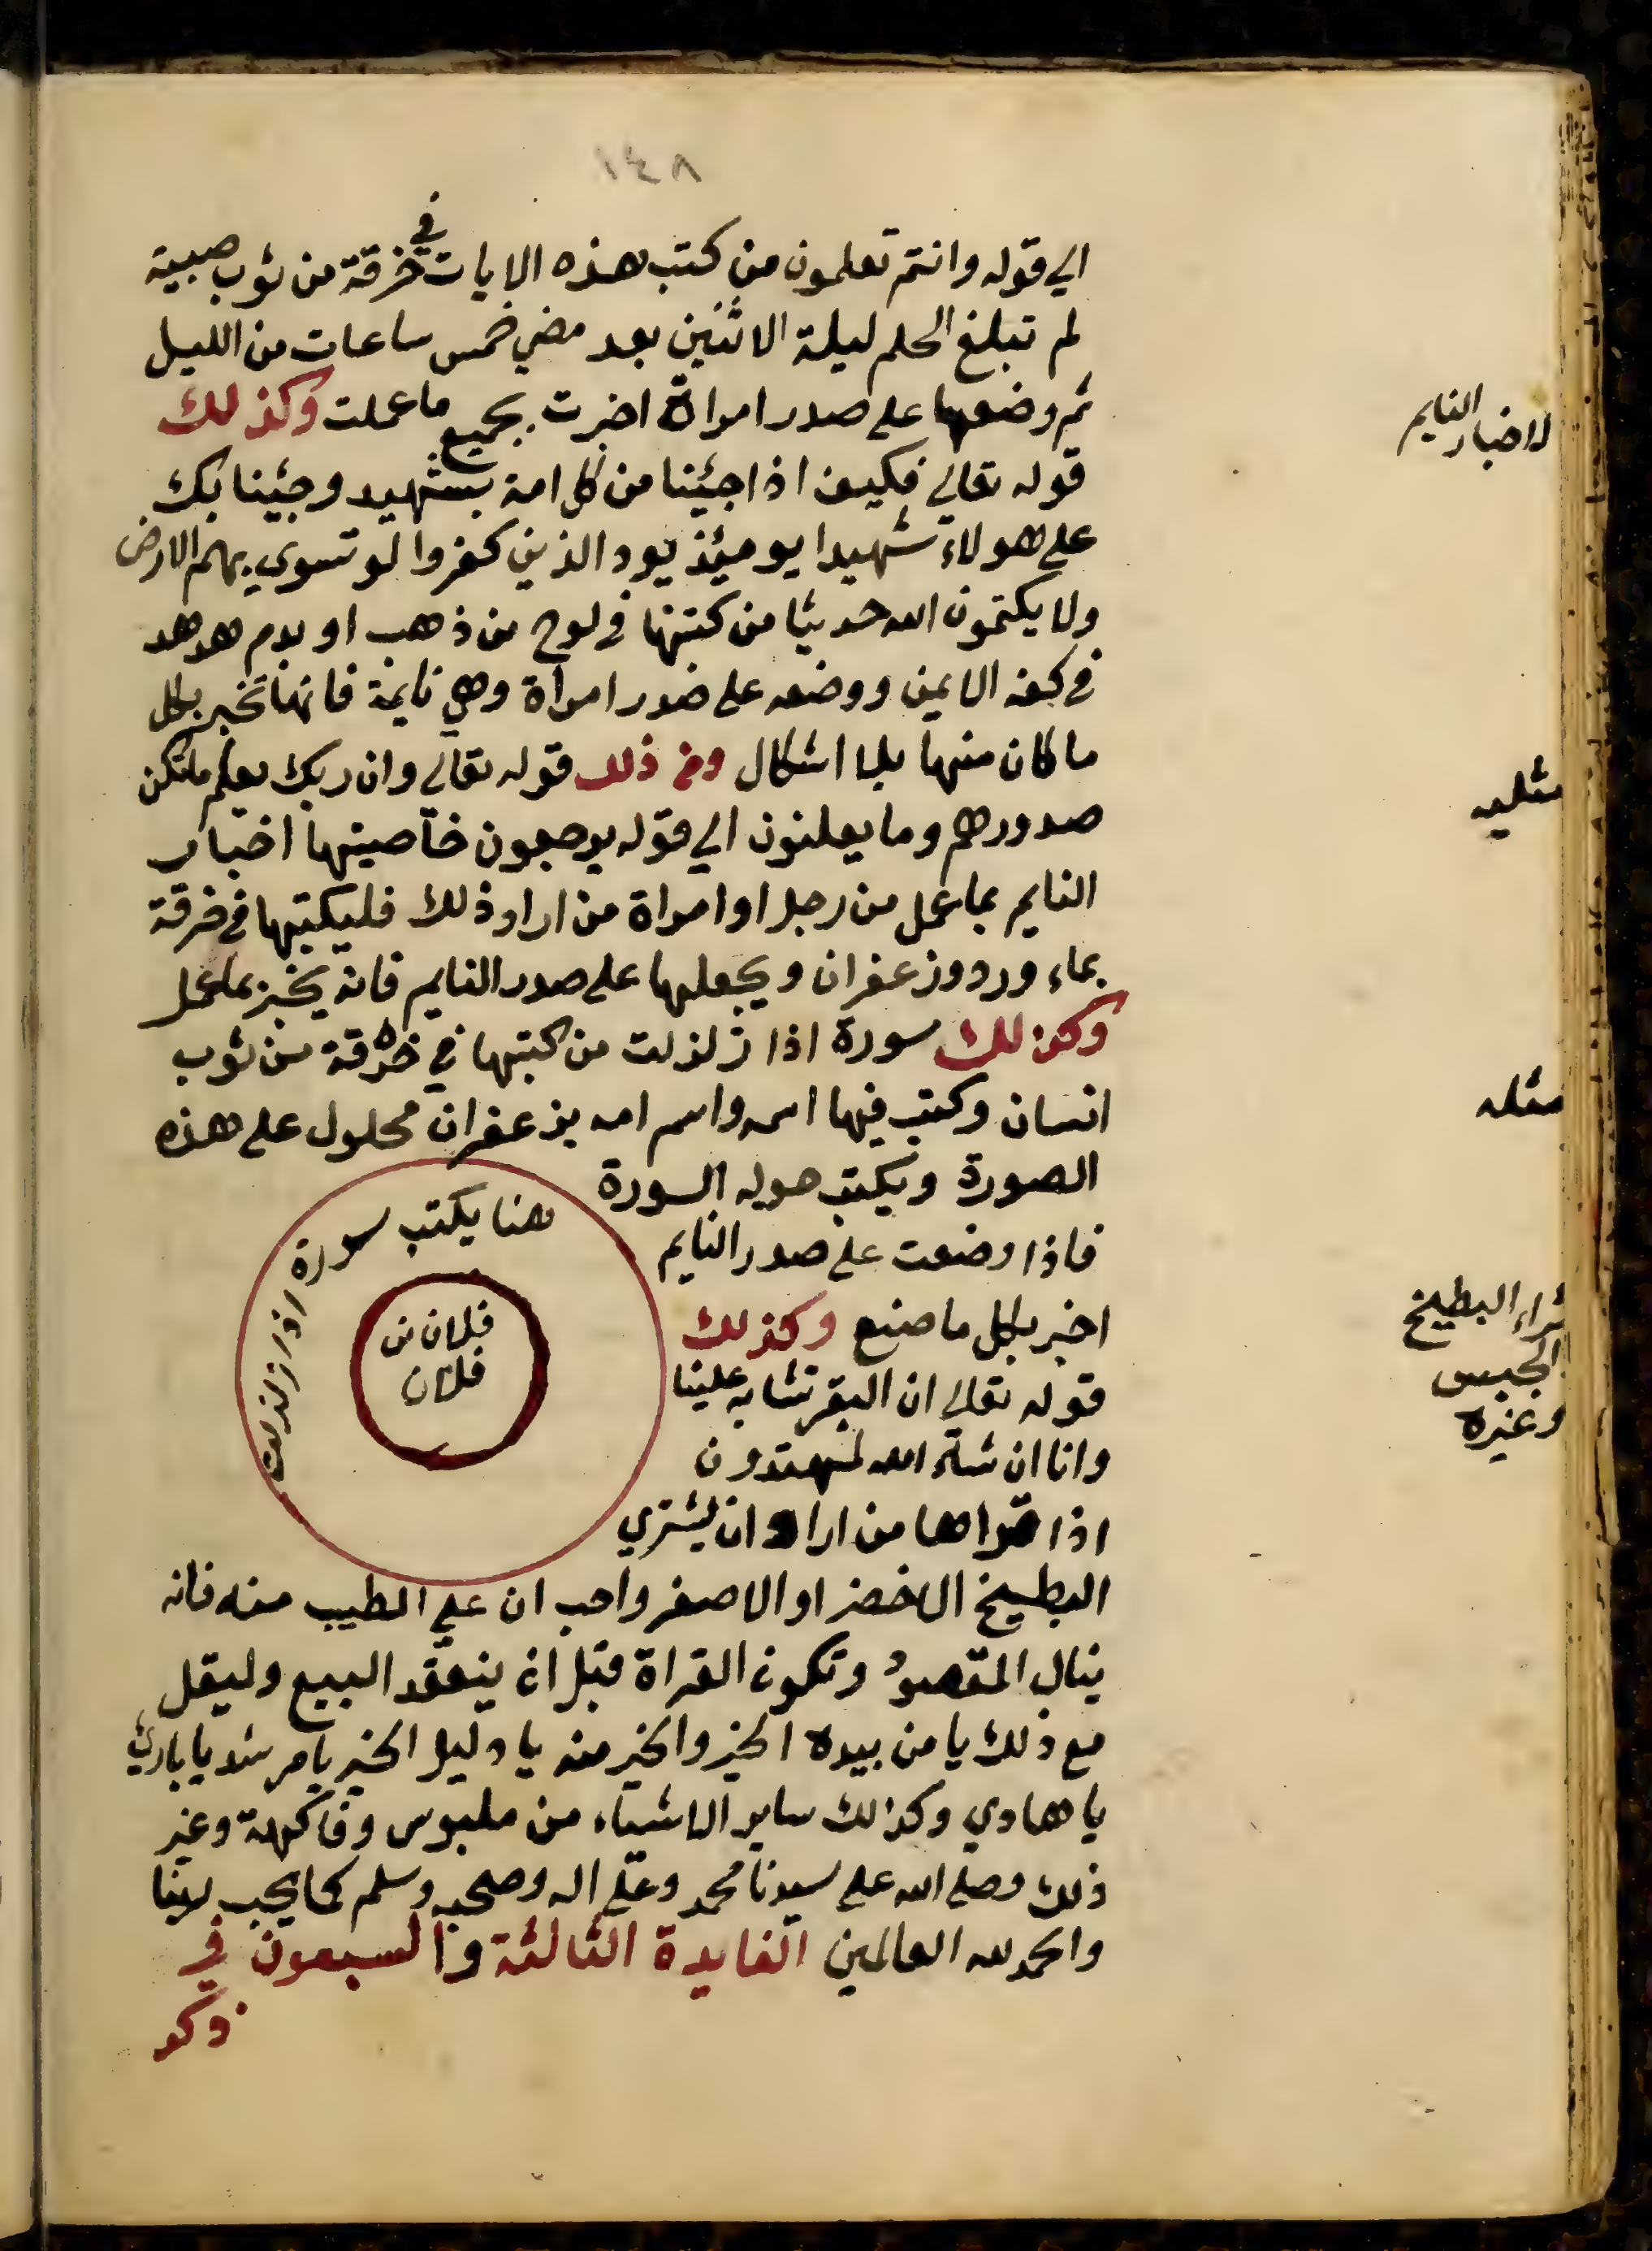 ١٤٨
الي قوله وانتم تعلمون من كتب هذه الايات في خرقة من ثوب صبية
لم تبلغ الحلم ليلة الاثنين بعد مضي خمس ساعات من الليل
ثم وضعها على صدر امراة اخبرت بجميع ما عملت وكذلك
لاخبار النايم
قوله تعالي فكيف اذا جئنا من كل امة بشهيد وجئنا بك
على هولاء شهيدا يومئذ يود الذين كفروا لو تسوي بهم الارض
ولا يكتمون الله حديثا من كتبها في لوح من ذهب او بدم هدهد
في كفه الايمن ووضعه على صدر امراة وهي نايمة فانها تخبر بكل
ما كان منها بلا اشكال ومن ذلك قوله تعالي وان ربك يعلم ما تكن
مثليه
صدورهم وما يعلنون الي قوله يرجعون خاصيتها اخبار
النايم بما عمل من رجل او امراة من اراد ذلك فليكتبها في خرقة
بماء ورد وزعفران ويجعلها على صدر النايم فانه يخبر بما عمل
وكذلك سورة اذا زلزلت من كتبها في خرقة من ثوب
مثله
انسان وكتب فيها اسمه واسم امه بزعفران محلول على هذه
الصورة ويكتب حوله السورة
فاذا وضعت على صدر النايم
اخبر بكل ما صنع وكذلك
شراء البطيخ
الجبس
وغيره
قوله تعالي ان البقر تشابه علينا
وانا ان شاء الله لمهتدون
اذا قراها من اراد ان يشتري
هنا يكتب سورة اذا زلزلت
فلان بن
فلان
البطيخ الاخضر او الاصفر واحب ان على الطيب منه فانه
ينال المقصود وتكون القراة قبل ان ينعقد البيع وليقل
مع ذلك يا من بيده الخير والخير منه يا دليل الخير يا مرشد يا بارئ
يا هادي وكذلك ساير الاشياء من ملبوس وفاكهة وغير
ذلك وصلى الله على سيدنا محمد وعلى اله وصحبه وسلم كما يحب ربنا
والحمد لله العالمين الفايدة الثالثة والسبعون في
ذكر